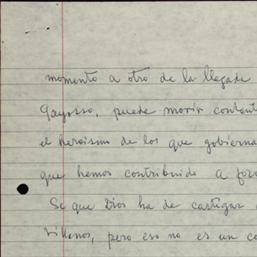 momento a otro de la llegada
Gayosso, puede morir
el heroismo de los que goberna
que hemos contribuido a for
Se que Dios ha de castigar
Villanos, pero eso no es un co